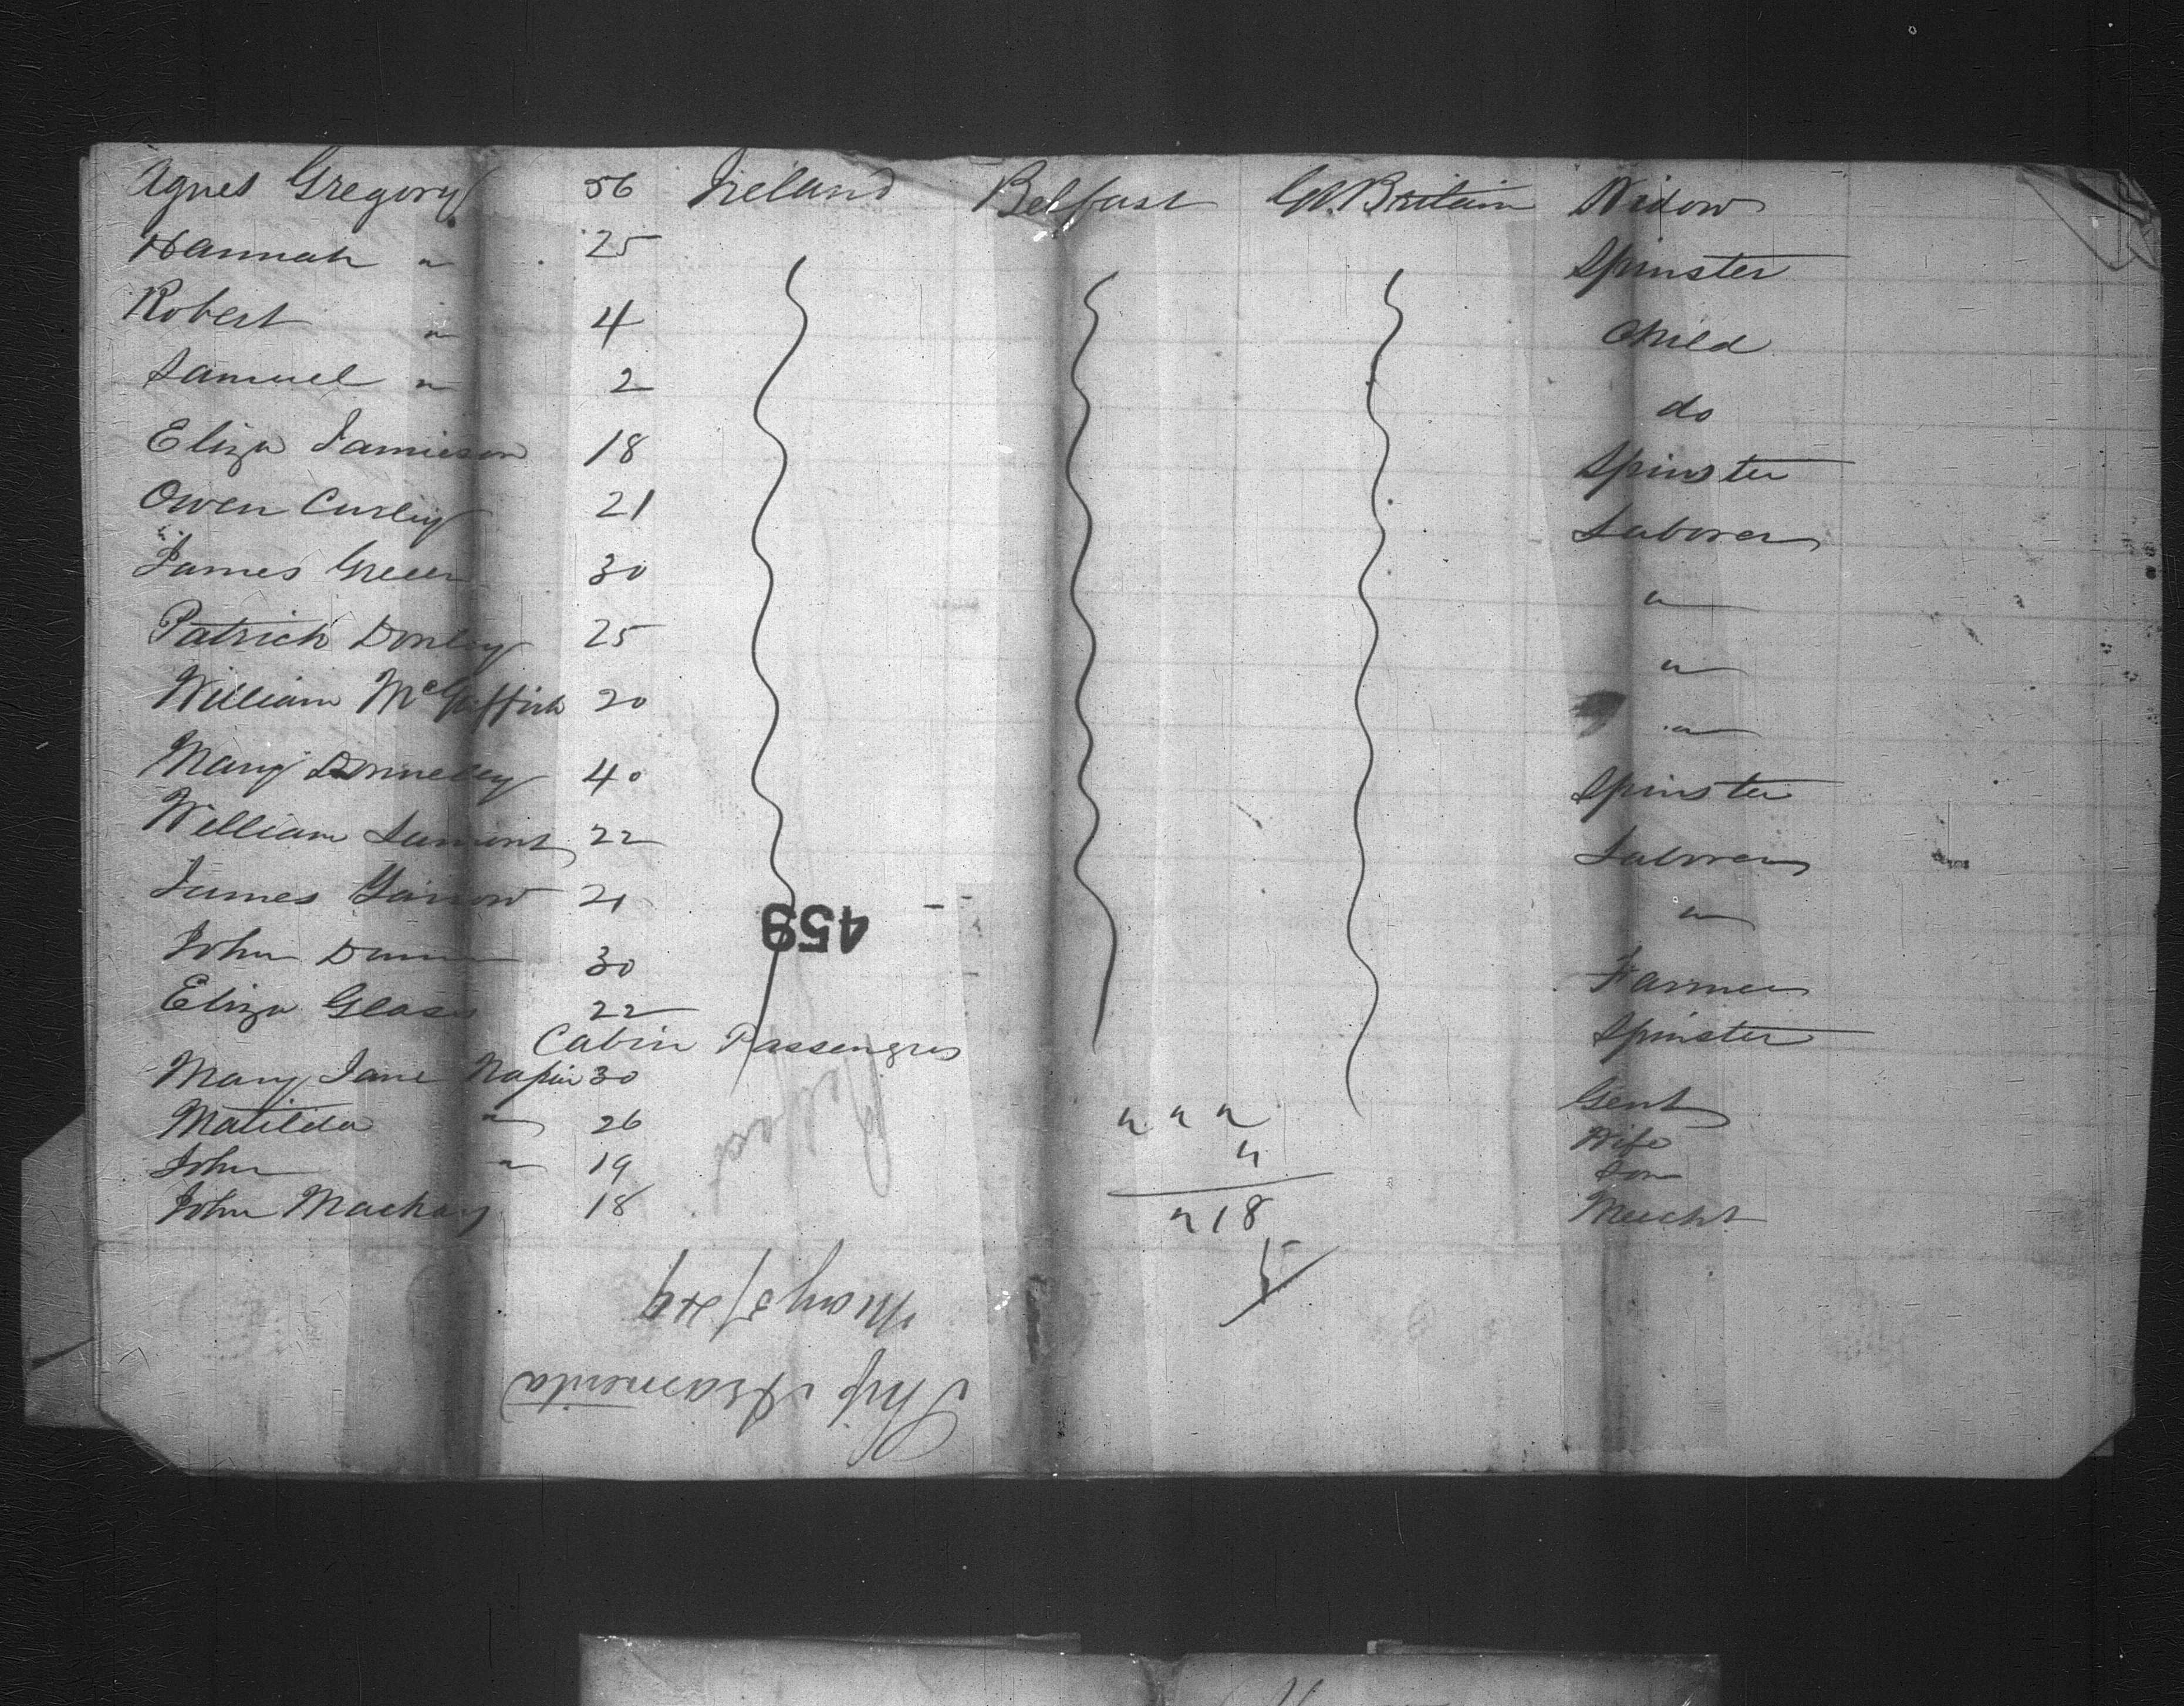 Agnes Gregory 56 Ireland Belfast Gt. Britain Widow
Hannah " 25 Spinster
Robert " 4 Child
Samuel " 2 do
Eliza Jamieson 18 Spinster
Owen Curley 21 Laborer
James Green 30 "
Patrick Donley 25 "
William 20 "
Mary Donneley 40 Spinster
William Lamont 22 Laborer
James 21 "
John Dunn 30 Farmer
Eliza Glass 22 Spinster
Cabin Passengers
Mary Jane Napier 30 Gent
Matilda " 26 " " " Wife
John " 19 " Son
John Mackay 18 "18 Mercht
459
Belfast
May 5/44
Ship